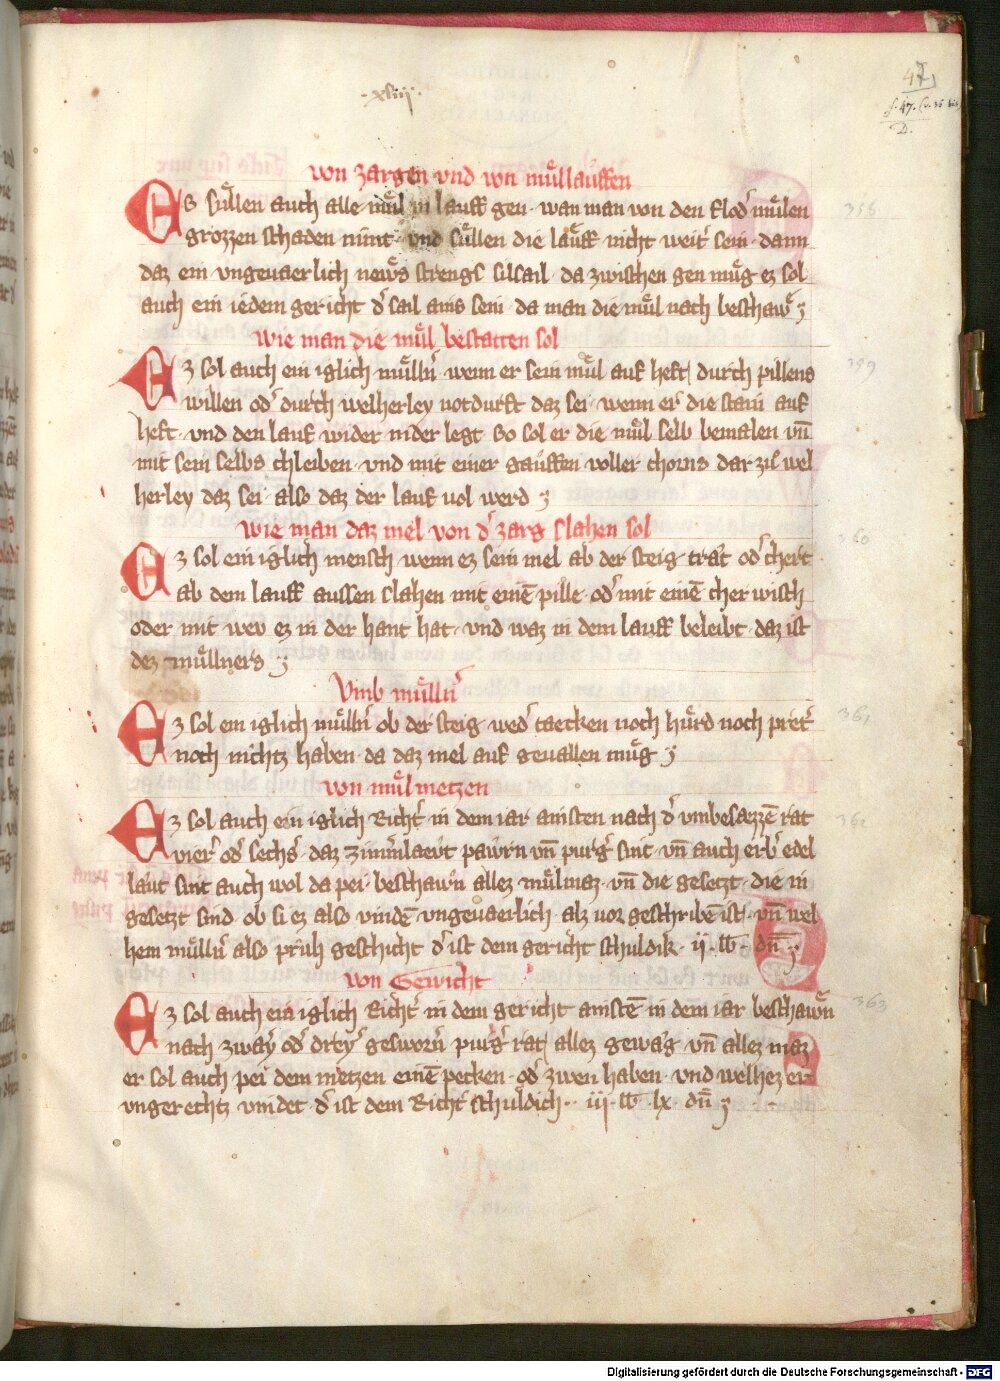 ·xliii·
47
f. 47.
D.
von zargen vnd von mu̍llaüffen
Es su̍llen auch alle mu̍l in lauff gen · wan man von den flod᾽ mu̍len
grozzen schaden nimt · vnd su̍llen die laüff nicht weit᾽ sein · dann
daz ein vngeuaerlich new᾽s strengs silsail · da zwischen gen mu̍g ez sol
auch ein iedem gericht d᾽ sail ains sein · da man die mu̍l nach beschaw᾽ ʒ
358
wie man die mu̍l bestatten sol
Ez sol auch ein iglich mu̍ln᾽ wenn er sein mu̍l auf heft / durch pillens
willen od᾽ durch welherley notdurft daz sei · wenn er die stain auf
heft · vnd den lauf wider nider legt so sol er die mu̍l selb bemalen vn̄
mit sein selbs chleiben · vnd mit einer gaüffen voller chorns dar zu wel
herley daz sei · also daz der lauf vol werd ʒ
359
wie man daz mel von d᾽ zarg slahen sol
Ez sol ein iglich mensch wenn ez sein mel ab der steig trat od᾽ chert
ab dem lauff aussen slahen mit einē pille · od᾽ mit einē cher wisch
oder mit wev ez in der hant hat · vnd waz in dem lauff beleibt · daz ist
dez mu̍llners ʒ
360
Vmb mu̍lln᾽
Ez sol ein iglich mu̍lln᾽ ob der steig · wed᾽ taecken noch hürd noch pret᾽
noch nichtz haben · da daz mel auf geuallen mu̍g ʒ
361
von mu̍lmetzen
Ez sol auch ein iglich Richt᾽ in dem iar ainsten nach d᾽ vmbesazzē rat
vier᾽ od᾽ sechs᾽ · daz zimmlaevt paẃrn vn̄ purg᾽ sint · vn̄ auch erb᾽ edel
laüt sint auch wol da pei · beschaẃn allez mu̍lmaz · vn̄ die gesetzt · die in
gesetzt sind · ob si ez also vindē vngeuaerlich · alz vor geschribē ist / vn̄ wel
hem mu̍lln᾽ also prüh geschicht d᾽ ist dem gericht schuldik · ij · lb · dn̄ ʒ
362
von Gewicht
Ez sol auch ein iglich Richt᾽ in dem gericht ainstē in dem iar beschaẃn
nach zwaẏ od᾽ dreẏ᾽ gesworn᾽ purg᾽ rat / allez gewäg · vn̄ allez maz
er sol auch pei dem metzen einē pecken · od᾽ zwen haben · vnd welhez er
vngerechtz vindet d᾽ ist dem Richt᾽ schuldich · iij · lb · lx · dn̄ ʒ
363
Digitalisierung gefördert durch die Deutsche Forschungsgemeinschaft - DFG